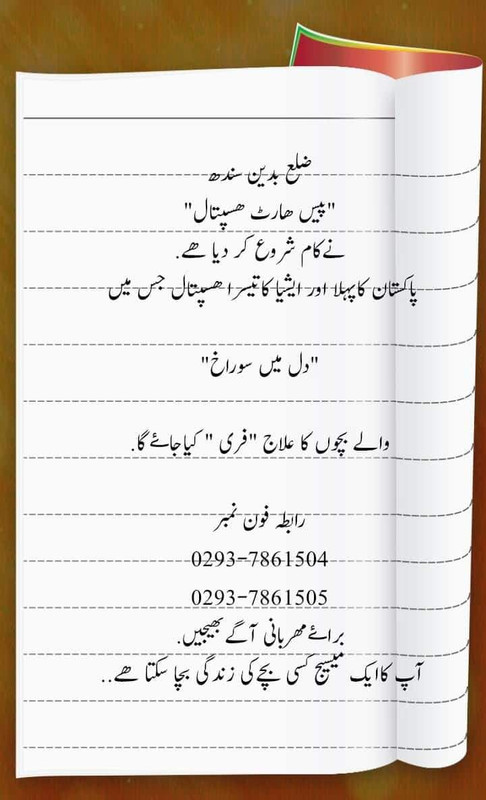 ضلع بدین سندھ
"پیس ھارٹ ھسپتال"
نےکام شروع کر دیا ھے.
پاکستان کاپہلا اور ایشیا کاتیسرا ھسپتال جس میں
"دل میں سوراخ"
والے بچوں کا علاج "فری " کیاجاۓ گا.
رابطہ فون نمبر
0293-7861504
0293-7861505
براۓمھربانی آگے بھیجیں.
آپ کاایک میسیج کسی بچےکی زندگی بچا سکتا ھے..